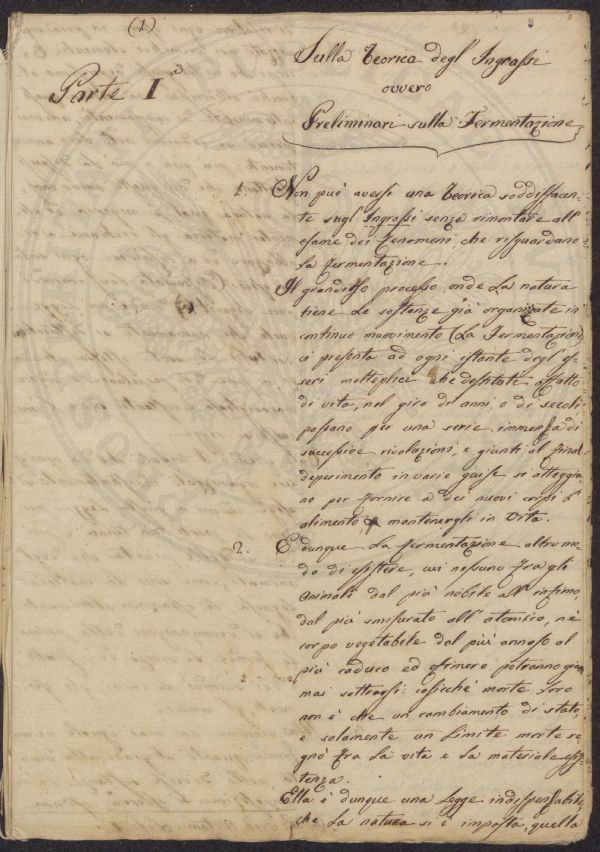 (1)
Parte I.a
Sulla Teorica degl'Ingrassi
ovvero
Preliminari sulla Fermentazione
1. Non può aversi una Teorica soddisfacen-
te sugl'Ingrassi senza rimontare all'
esame dei fenomeni, che risguardano
la fermentazione.
Il grandioso processo, onde la natura
tiene le sostanze già organizzate in
continuo muovimento (la Fermentazione)
ci presenta ad ogni istante degl'es-
seri molteplici che destitute affatto
di vita, nel giro di anni, o di secoli,
passano per una serie immensa di
successive rivoluzioni, e giunti al final
deperimento in varie guise si atteggia-
no per fornire a dei nuovi corpi l'
alimento e mantenergli in Vita.
2. È dunque la fermentazione altro mo-
do di esistere, cui nessuno fra gli
Animali dal più nobile all'infimo,
dal più smisurato all'atomico, nè
corpo vegetabile dal più annoso al
più caduco ed efimero potranno giam
mai sottrarsi: cosicchè morte loro
non è che un cambiamento di stato,
e solamente un limite morte se-
gnò fra la vita e la materiale esis-
tenza.
Ella è dunque una Legge indispensabile,
che la natura si è imposta, quella